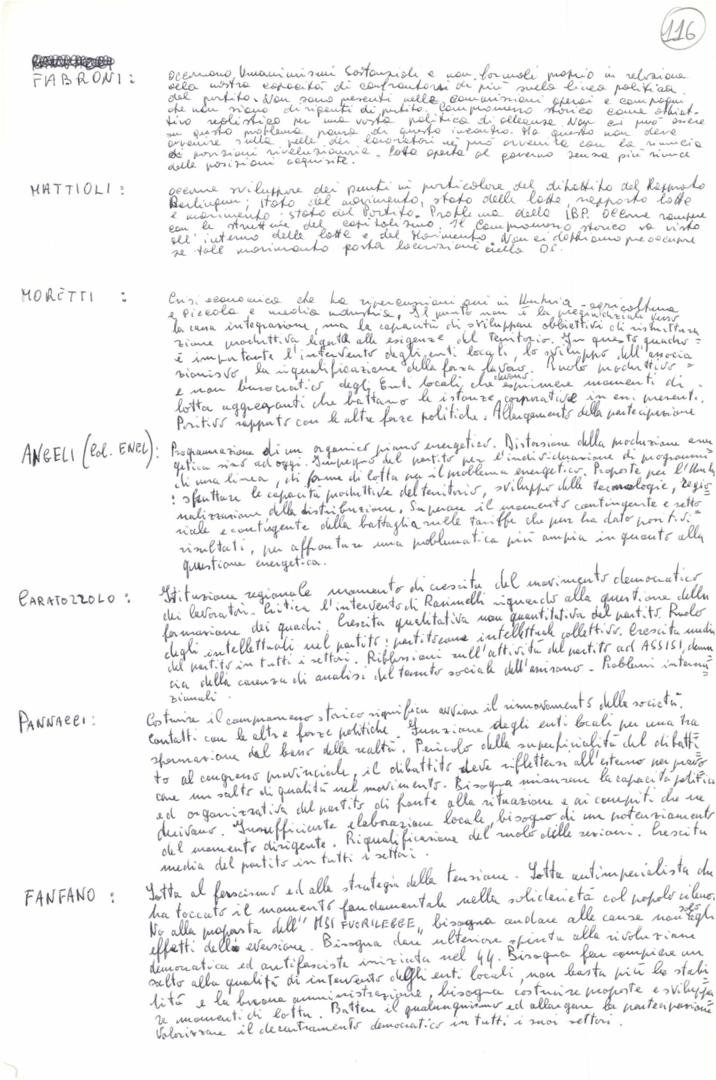 116
FABRONI: occorrono Unanimismi Sostanziali e non formali proprio in relazione
alla nostra capacità di confrontarsi di più sulla linea politica
del partito. Non sono presenti nelle commissioni operai e compagni
che non siano dirigenti di partito. Compromesso storico come obiet-
tivo realistico per una vasta politica di alleanze. Non ci può essere
su questo problema paura di questo incontro. Ma questo non deve
avvenire sulla pelle dei lavoratori nè può avvenire con la rinuncia
di posizioni rivoluzionarie. Lotta aperta al governo senza più rinunce
delle posizioni acquisite.
MATTIOLI: occorre sviluppare dei punti in particolare del dibattito del Rapporto
Berlinguer; stato del movimento, stato delle lotte, rapporto lotte
e movimento: stato del Partito. Problema della IBP. Occorre rompere
con le strutture del capitalismo. Il Compromesso storico va visto
all'interno delle lotte e del Movimento. Non ci dobbiamo preoccupare
se tale movimento porta lacerazioni nella DC.
MORETTI: Crisi economica che ha ripercussioni qui in Umbria - agricoltura
e Piccola e media industria. Il punto non è la pregiudiziale verso
la cassa integrazione, ma la capacità di sviluppare obbiettivi di ristruttura
zione produttiva legata alle esigenze del territorio. In questo quadro
è importante l'intervento degli enti locali, lo sviluppo dell'associa
zionismo, la riqualificazione della forza lavoro. Ruolo produttivo
e non burocratico degli Enti locali, che devono esprimere momenti di
lotta aggreganti che battano le istanze corporative in essi presenti.
Positivo rapporto con le altre forze politiche. Allargamento della partecipazione
ANGELI (Col. ENEL): Programmazione di un organico piano energetico. Distorsione della produzione ener
getica sino ad oggi. Impegno del partito per l'individuazione di programmi
di una linea, di forme di lotta per il problema energetico. Proposte per l'Umbria
: sfruttare le capacità produttive del territorio, sviluppo delle tecnologie, regio
nalizzazione della distribuzione. Superare il momento contingente e setto
riale e contingente della battaglia sulle tariffe che pur ha dato positivi
risultati, per affrontare una problematica più ampia in quanto alla
questione energetica.
CARATOZZOLO: Istituzione regionale momento di crescita del movimento democratico
dei lavoratori. Critica l'intervento di Rasimelli riguardo alla questione della
formazione dei quadri. Crescita qualitativa non quantitativa del partito. Ruolo
degli intellettuali nel partito: partito come intellettuale collettivo. Crescita media
del partito in tutti i settori. Riflessioni sull'attività del partito ad ASSISI, denun
cia della carenza di analisi del tessuto sociale dell'assisano. Problemi interna
zionali.
PANNACCI: Costruire il compromesso storico significa avviare il rinnovamento della società.
Contatti con le altre forze politiche. Funzione degli enti locali per una tra
sformazione dal basso della realtà. Pericolo della superficialità del dibatti
to al congresso provinciale, il dibattito deve riflettersi all'esterno per provo
care un salto di qualità nel movimento. Bisogna misurare la capacità politica
ed organizzativa del partito di fronte alla situazione e ai compiti che ne
derivano. Insufficiente elaborazione locale, bisogno di un potenziamento
del momento dirigente. Riqualificazione del ruolo delle sezioni. Crescita
media del partito in tutti i settori.
FANFANO: Lotta al fascismo ed alla strategia della tensione. Lotta antimperialista che
ha toccato il momento fondamentale nella solidarietà col popolo cileno.
No alla proposta dell'"MSI FUORILEGGE", bisogna andare alle cause non solo agli
effetti della eversione. Bisogna dare ulteriore spinta alla rivoluzione
democratica ed antifascista iniziata nel 44. Bisogna far compiere un
salto alla qualità di intervento degli enti locali, non basta più la stabi
lità e la buona amministrazione, bisogna costruire proposte e sviluppa
re momenti di lotta. Battere il qualunquismo ed allargare la partecipazione
Valorizzare il decentramento democratico in tutti i suoi settori.